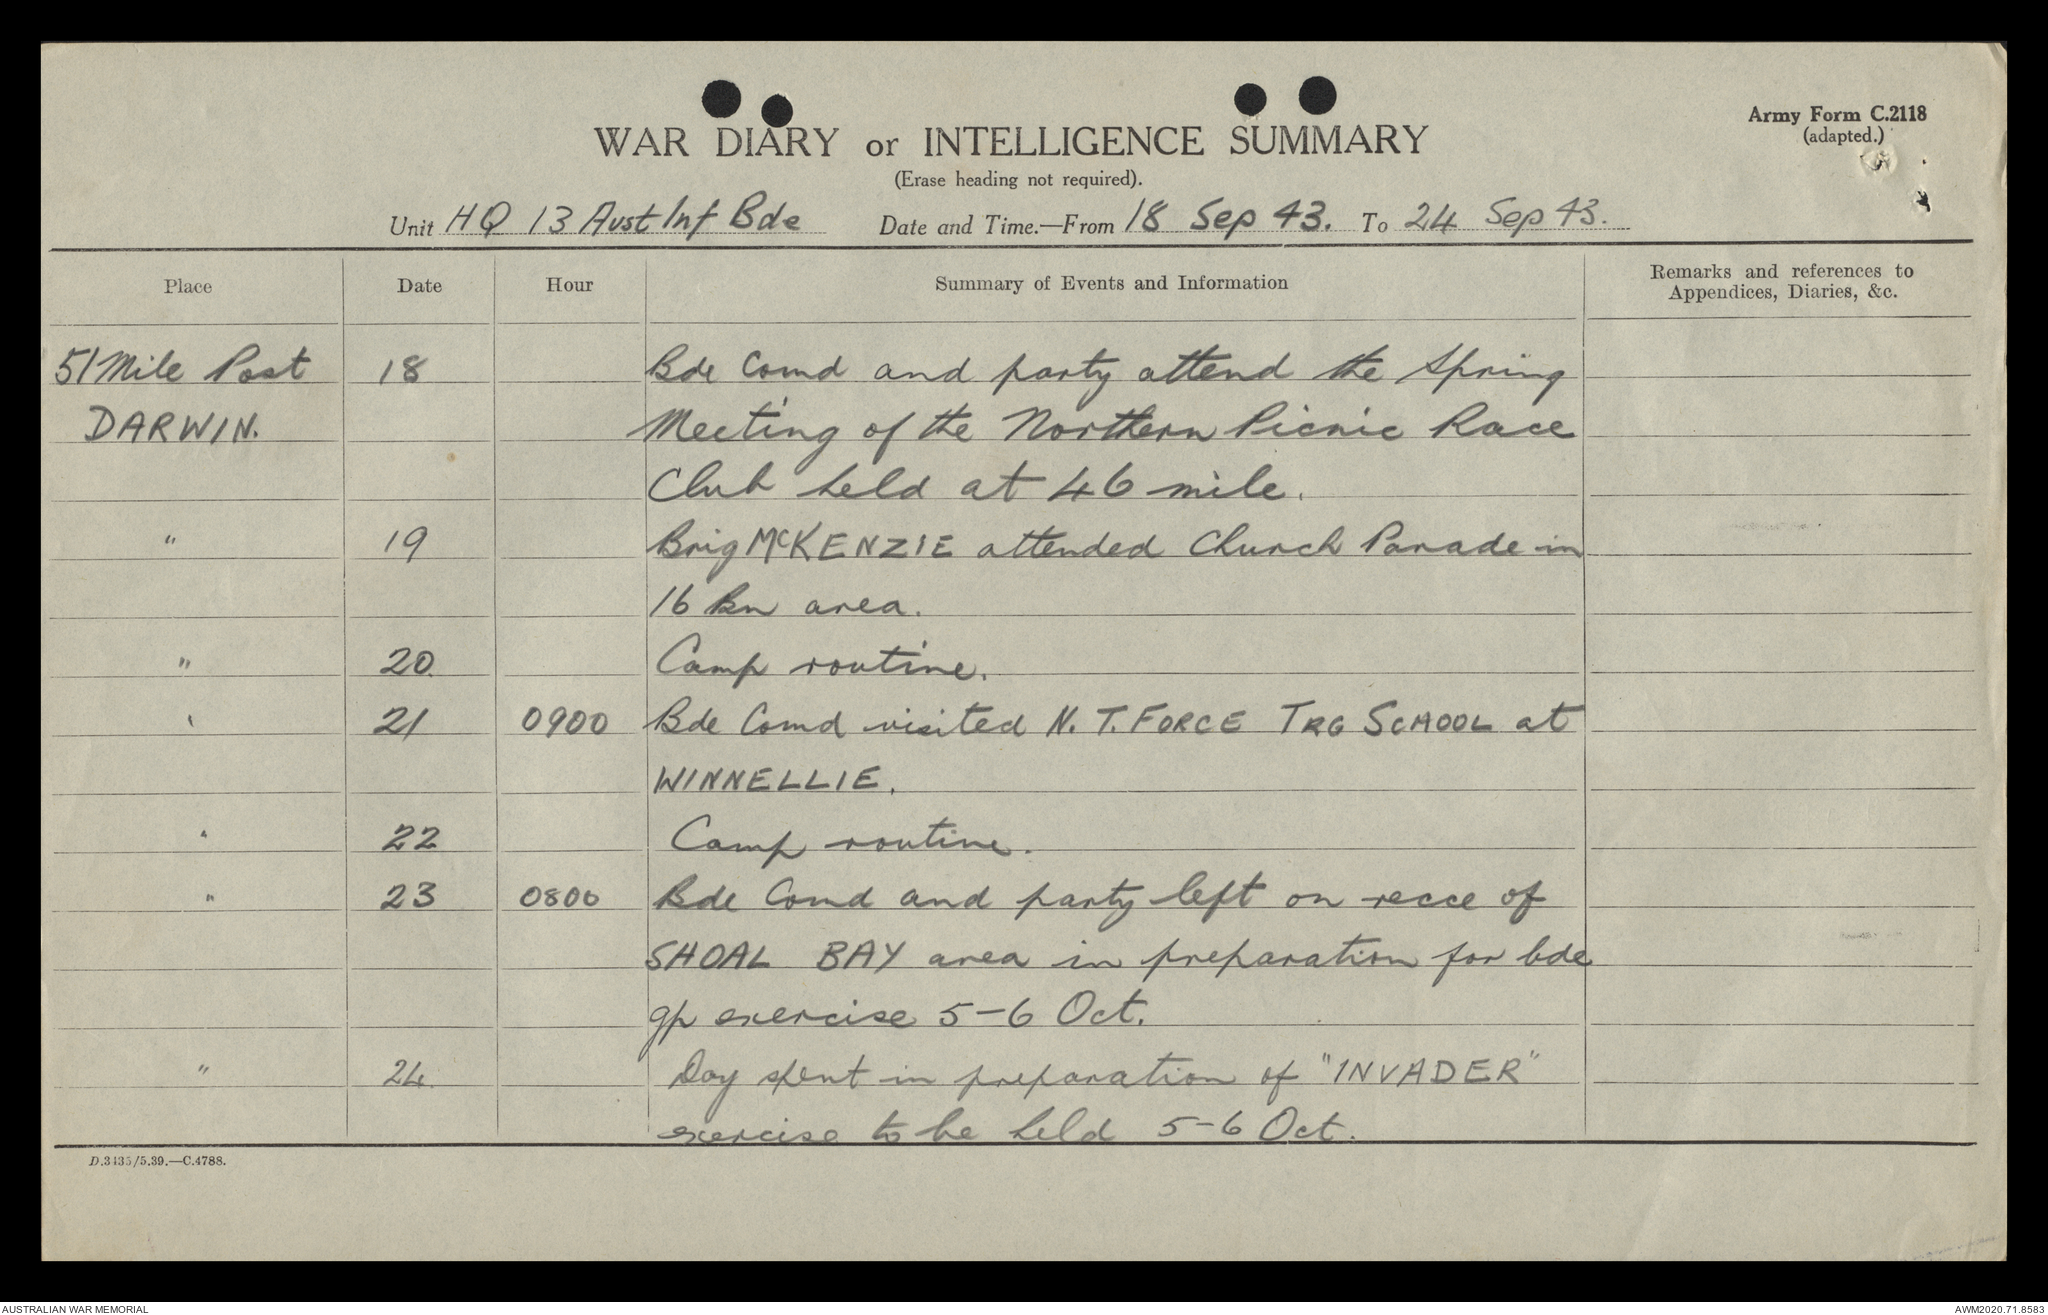 Army Form C.2118
(adapted.)
WAR DIARY or INTELLIGENCE SUMMARY
(Erase heading not required).
Unit HQ 13 Aust Inf Bde Date and Time.—From 18 Sep 43. To 24 Sep 43.
Place Date Hour Summary of Events and Information Remarks and references to Appendices, Diaries, &c.
51 Mile Post 18 Bde Comd and party attend the Spring
DARWIN. Meeting of the Northern Picnic Race
Club held at 46 mile.
" 19 Brig McKENZIE attended Church Parade in
16 Bn area.
" 20 Camp routine.
" 21 0900 Bde Comd visited N.T. FORCE TRG SCHOOL at
WINNELLIE.
" 22 Camp routine.
" 23 0800 Bde Comd and party left on recce of
SHOAL BAY area in preparation for bde
gp exercise 5-6 Oct.
" 24 Day spent in preparation of "INVADER"
exercise to be held 5-6 Oct.
D.3435/5.39.—C.4788.
AUSTRALIAN WAR MEMORIAL AWM2020.71.8583